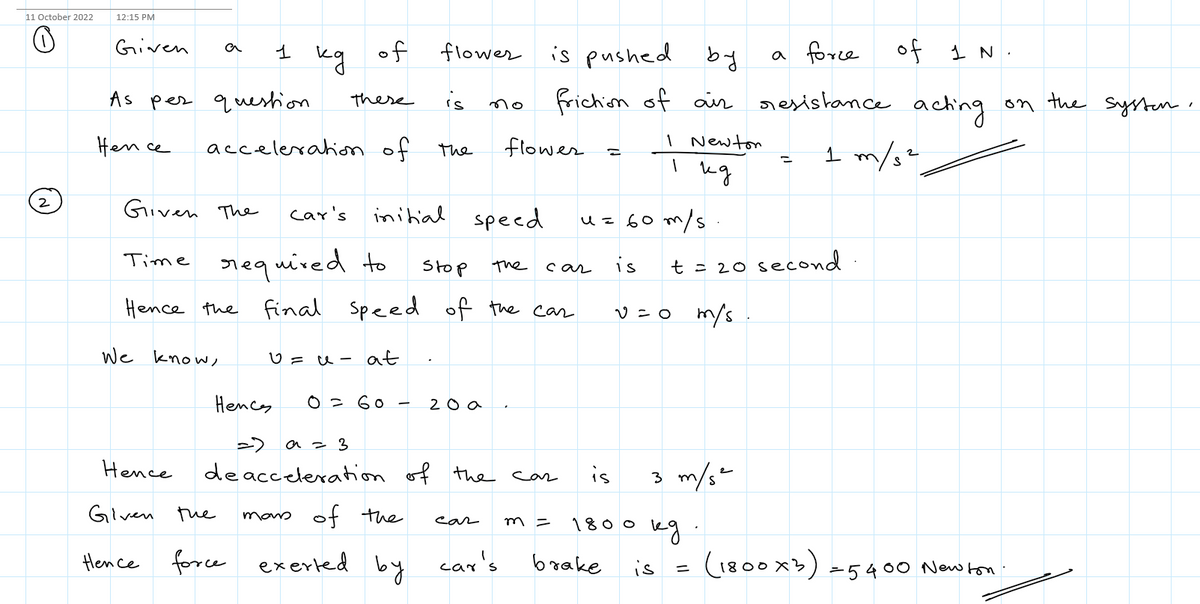 11 October 2022 12:15 PM
① Given a 1 kg of flower is pushed by a force of 1 N.
As per question there is no friction of air resistance acting on the system.
Hence acceleration of the flower = 1 Newton / 1 kg = 1 m/s²
② Given The car's initial speed u = 60 m/s.
Time required to stop the car is t = 20 second.
Hence the final speed of the car v = 0 m/s.
We know, v = u - at.
Hence, 0 = 60 - 20a.
=> a = 3
Hence deacceleration of the car is 3 m/s²
Given the mass of the car m = 1800 kg.
Hence force exerted by car's brake is = (1800 x 3) = 5400 Newton.